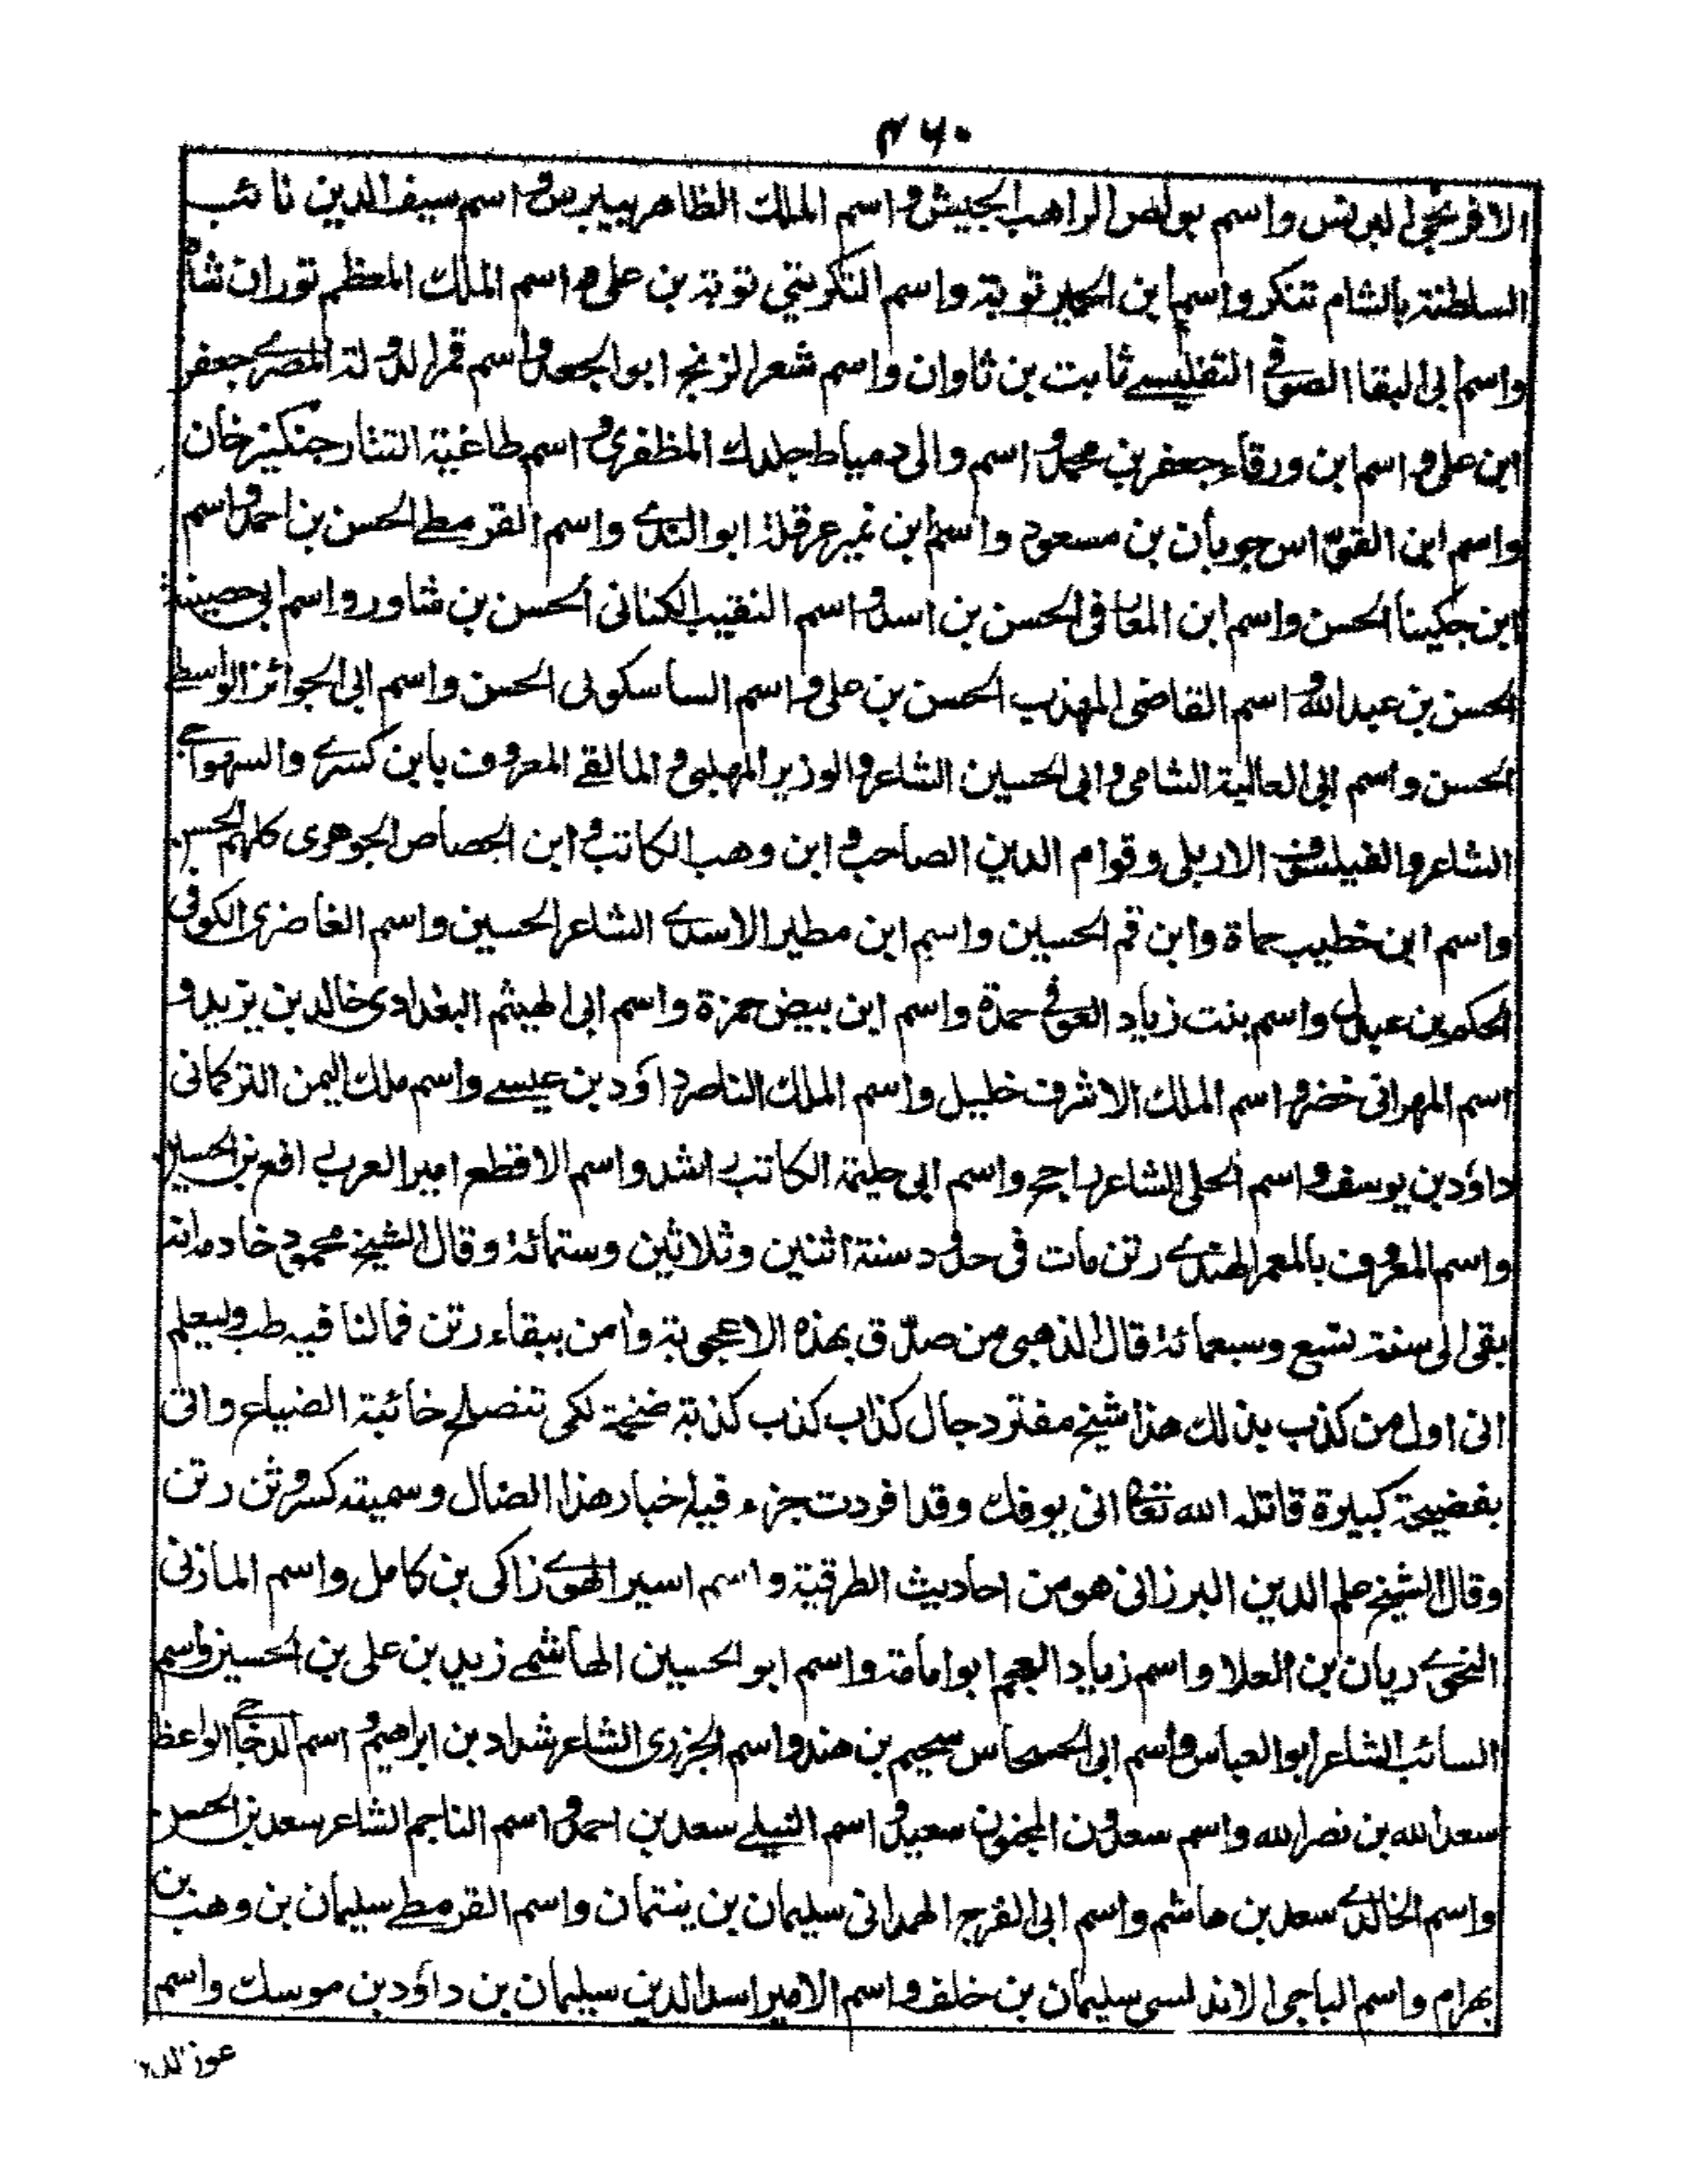 ۴۶۰
الافرنجي البرنس واسم بولص الراهب الجيش واسم الملك الظاهر بيبرس واسم سيف الدين نائب
السلطنة بالشام تنكر واسم ابن الحمير توبة واسم التكريتي توبة بن على واسم الملك المعظم توران شاه
واسم ابى البقا الصوفي التفليسے ثابت بن ثاوان واسم شعر الزنج ابو الجعد واسم قمر الدولة المصرے جعفر
ابن على واسم ابن ورقاء جعفر بن محمد واسم والى دمياط جلدك المظفرى واسم طاغية التتار جنكيز خان
واسم ابن القوّاس جوبان بن مسعود واسم ابن نمير عرقلة ابو الندے واسم القرمطے الحسن بن احمد واسم
ابن جكينا الحسن واسم ابن المعافى الحسن بن اسد واسم النقيب الكنانى الحسن بن شاور واسم ابى حصينة
الحسن بن عبد الله واسم القاضى المهذب الحسن بن على واسم الساسكولى الحسن واسم ابى الجوائز الواسطے
الحسن واسم ابى العالية الشامى وابى الحسين الشاعر والوزير المهلبى والمالقے المعروف بابن كسرے والسهواجے
الشاعر والفيلسوف الاربلى وقوام الدين الصاحب وابن وهب الكاتب وابن الجصاص الجوهرى كلهم الحسن
واسم ابن خطيب حماة وابن قم الحسين واسم ابن مطير الاسدے الشاعر الحسين واسم الغاضرى الكوفى
الحكم بن عبدل واسم بنت زياد العوفى حمدة واسم ابن بيض حمزة واسم ابى الهيثم البغدادى خالد بن يزيد و
اسم المهرانى خضر واسم الملك الاشرف خليل واسم الملك الناصر داؤد بن عيسے واسم ملك اليمن التركمانى
داؤد بن يوسف واسم الحلى الشاعر راجح واسم ابى حليمة الكاتب راشد واسم الاقطع امير العرب رافع بن الحسين
واسم المعروف بالمعمر الهندے رتن مات فى حدود سنة اثنين وثلاثين وستمائة وقال الشيخ محمود خادمه انه
بقى الى سنة تسع وسبعمائة قال الذهبى من صدّق بهذه الاعجوبة وامن ببقاء رتن فما لنا فيه طب وليعلم
انى اول من كذب بذلك هذا شيخ مفتر دجال كذاب كذب كذبة ضخمة لكى تنصلح خائبة الضياع واتى
بفضيحة كبيرة قاتله الله تعا انى يوفك وقد افردت جزء فيه اخبار هذا الضال وسميته كسر وثن رتن
وقال الشيخ علم الدين البرزانى هو من احاديث الطرقية واسم اسير الهوے زاكى بن كامل واسم المازنى
النحوے ريان بن العلا واسم زياد العجم ابو امامة واسم ابو الحسين الهاشمے زيد بن على بن الحسين واسم
السائب الشاعر ابو العباس واسم ابى الحسحاس سحيم بن هند واسم الجزرى الشاعر شداد بن ابراهيم واسم الدجاجے الواعظ
سعد الله بن نصر الله واسم سعدون المجنون سعيد واسم النيلے سعد بن احمد واسم الناجم الشاعر سعد بن الحسن
واسم الخالدے سعد بن هاشم واسم ابى الفرج الهمدانى سليمان بن ينتمان واسم القرمطے سليمان بن وهب بن
بهرام واسم الباجى الاندلسى سليمان بن خلف واسم الامير اسد الدين سليمان بن داؤد بن موسك واسم
عون الدين